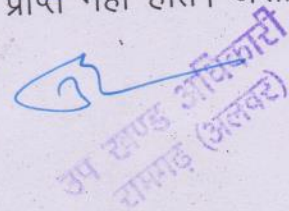 प्राप्त नहीं होता।
उप खण्ड अधिकारी
रामगढ़ (अलवर)